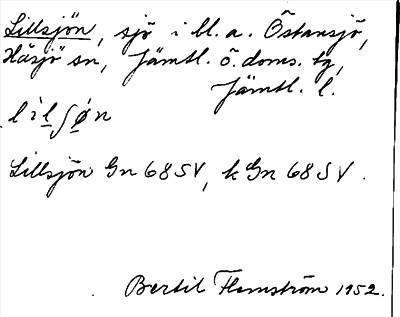 Lillsjön, sjö i bl. a. Östansjö,
Häsjö sn, Jämtl. ö. doms. tg,
Jämtl. l.
lìlʃøn
Lillsjön Gn 68 SV, k Gn 68 SV.
Bertil Flemström 1952.